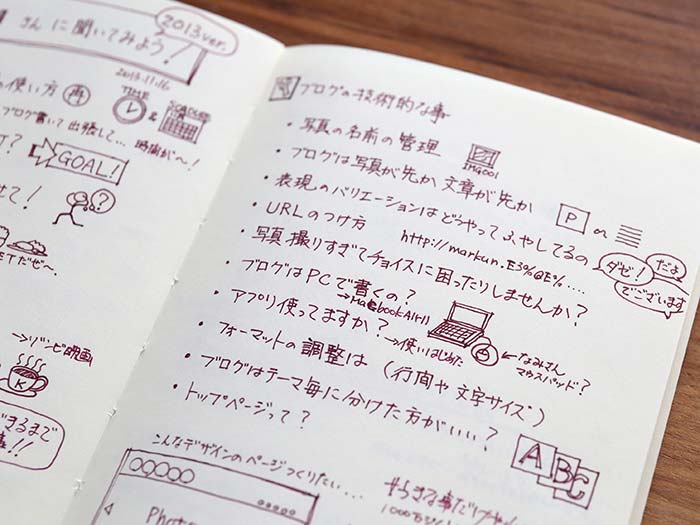 2013ver.
さんに聞いてみよう!
2013.11.16
の使い方 再
TIME & SCHEDULE
ブログ書いて出張して... 時間が〜!
T? GOAL!
せて! ?
ETだぜ〜。
→ゾンビ映画
K
できるまで
!!
ブログの技術的な事
・写真の名前の管理
IMG001
・ブログは写真が先か 文章が先か
P or
・表現のバリエーションはどうやってふやしてるの
ダゼ! だよ でございます
・URLのつけ方 http://markun.E3%@E%.....
・写真撮りすぎてチョイスに困ったりしませんか?
・ブログはPCで書くの?
→MacbookAIR11
・アプリ使ってますか?
→使いはじめた
←なみさん
マウスパッド?
・フォーマットの調整は (行間や文字サイズ)
・ブログはテーマ毎に分けた方がいい?
・トップページって?
ABC
こんなデザインのページつくりたい...
Photo